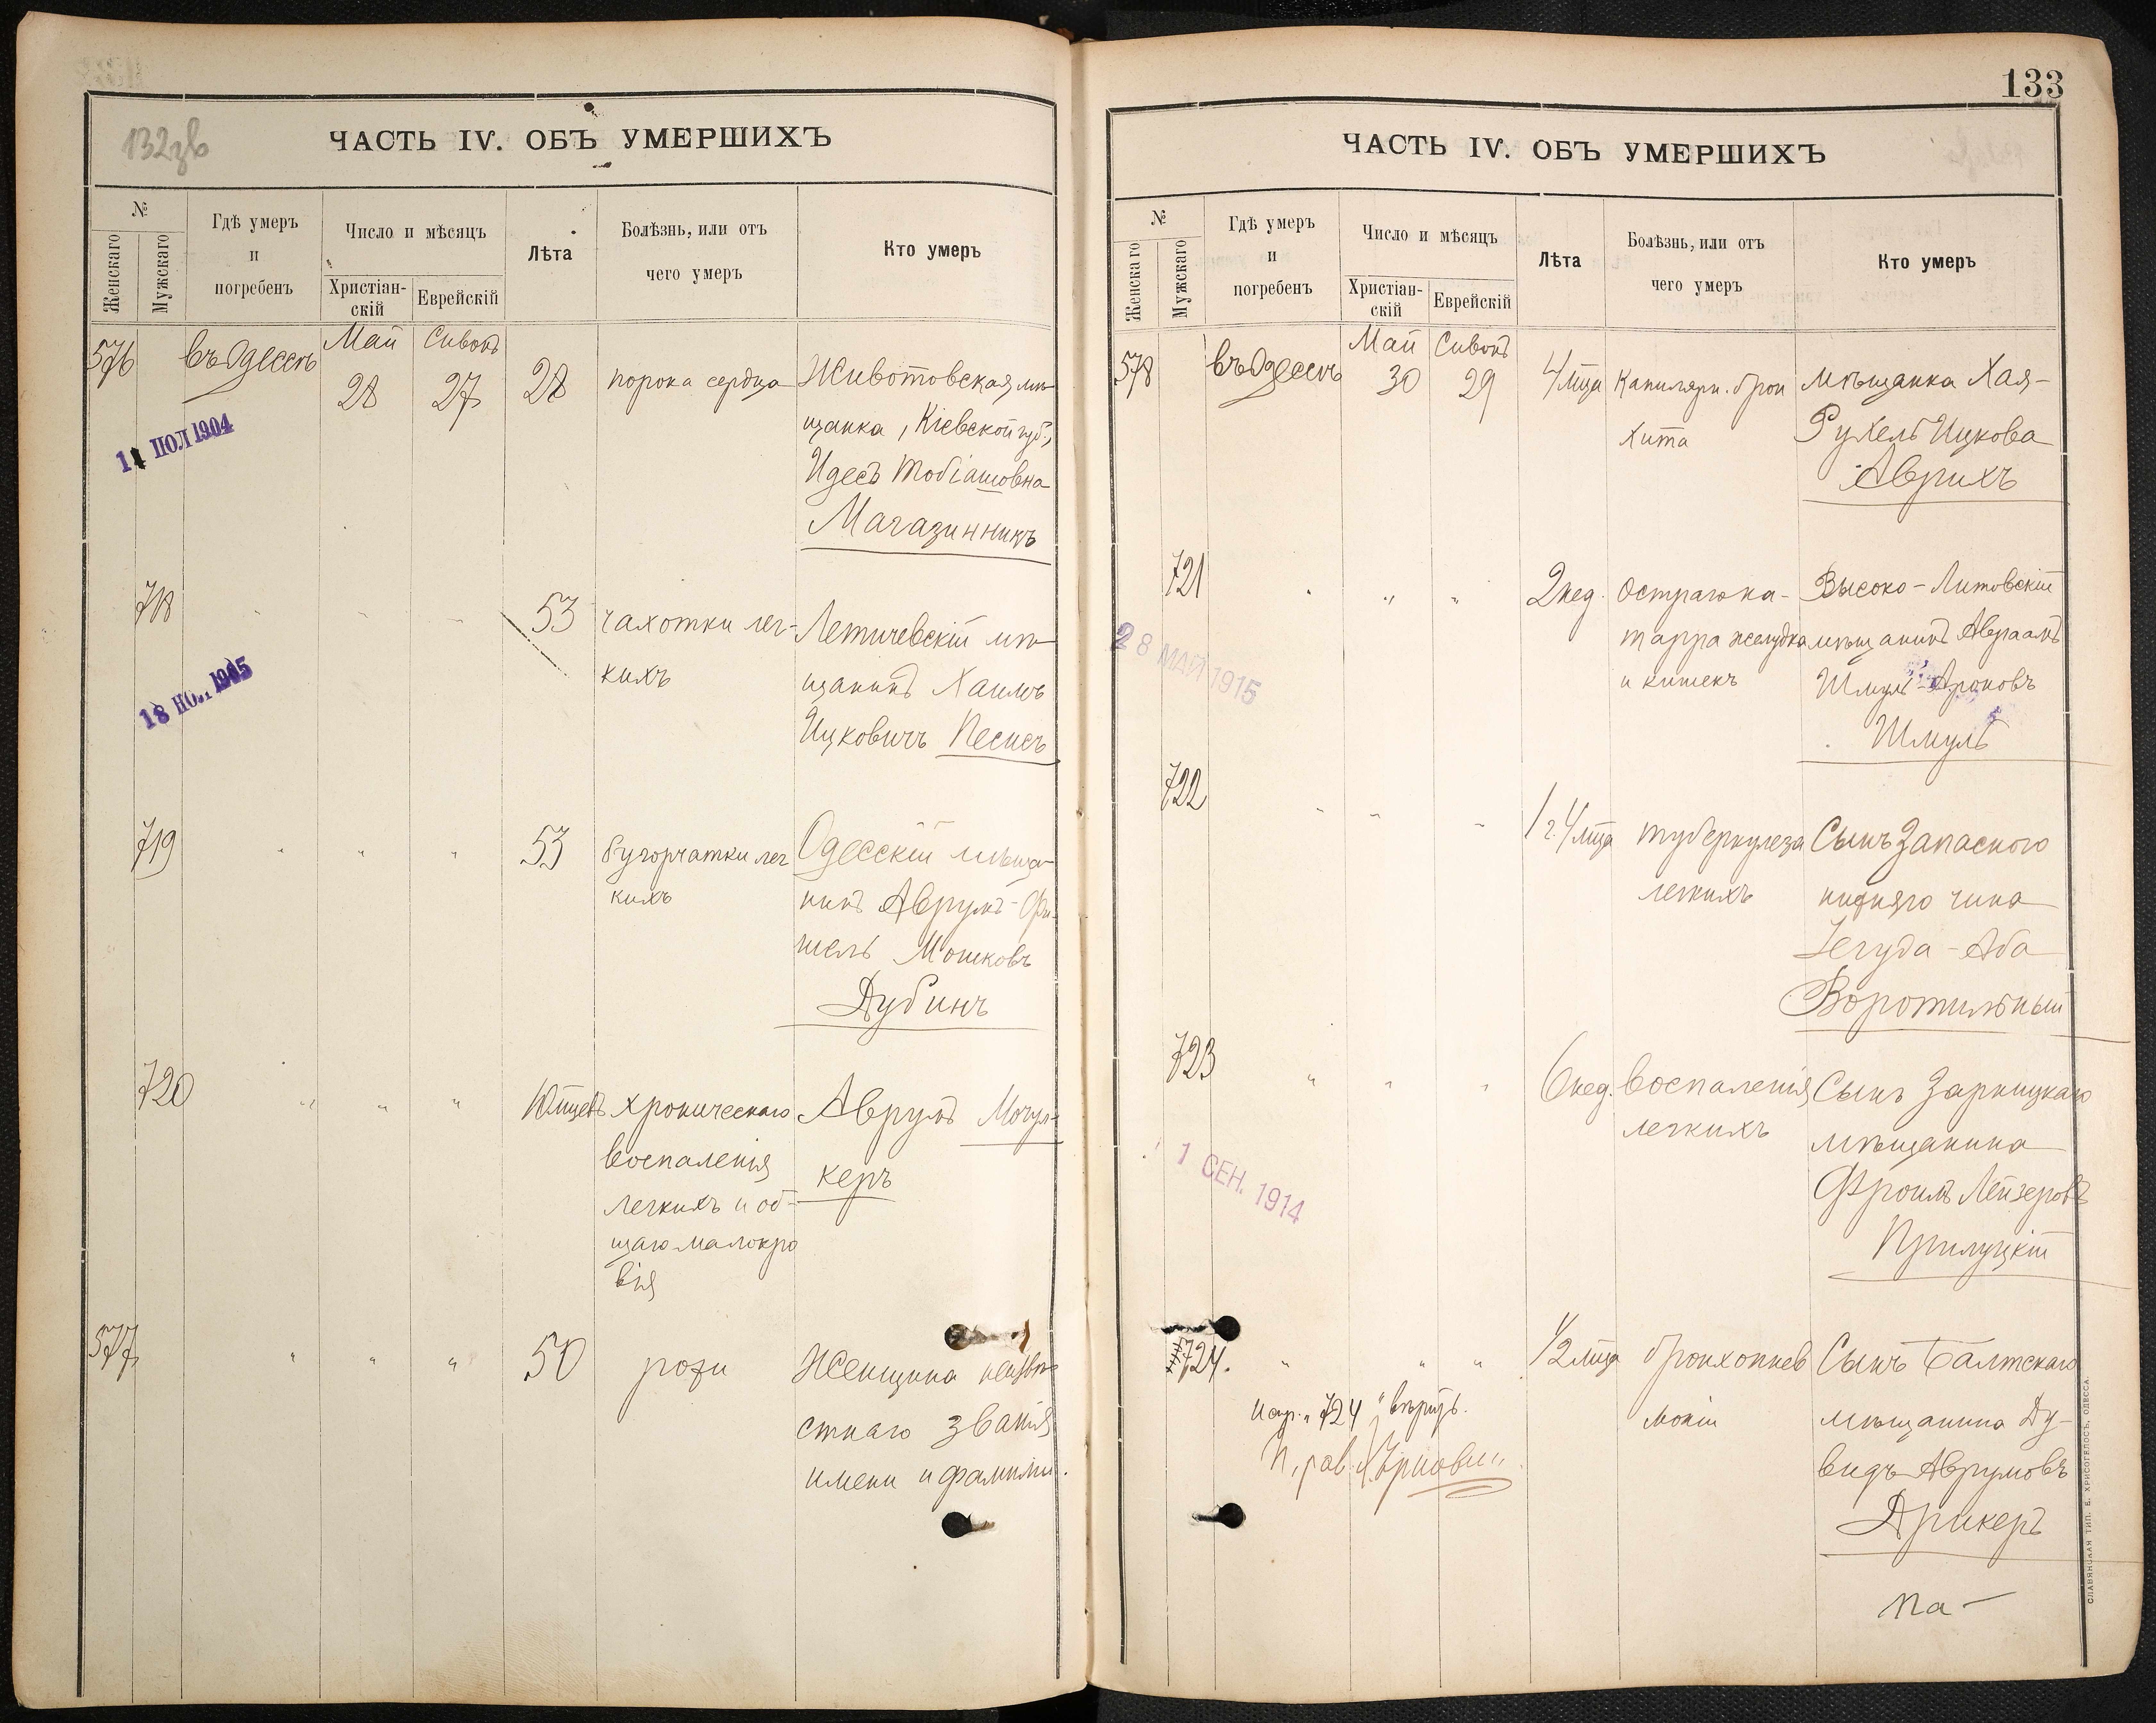 132зв
ЧАСТЬ IV. ОБЪ УМЕРШИХЪ
№
Женскаго
Мужскаго
Гдѣ умеръ
и
погребенъ
Число и мѣсяцъ
Христіан-
скій
Еврейскій
Лѣта
Болѣзнь, или отъ
чего умеръ
Кто умеръ
576
въ Одессѣ
Май
28
Сивонъ
27
28
порока сердца
Животовская мѣ-
щанка, Кіевской губ.,
Идесъ Тобіашовна
Магазинникъ
11 ІЮЛ 1904
718
" " "
53
чахотки лег-
кихъ
Летичевскій мѣ-
щанинъ Хаимъ
Ицковичъ Песисъ
18 1905
719
" " "
53
бугорчатки лег
кихъ
Одесскій мѣща-
нинъ Аврумъ-Фи-
шель Мошковъ
Дубинъ
720
" " "
10 мцевъ
хроническаго
воспаленія
легкихъ и об-
щаго малокро
вія
Аврумъ Могул-
керъ
577
" " "
50
рожи
Женщина неизвѣ-
стнаго званія
имени и фамиліи.
133
ЧАСТЬ IV. ОБЪ УМЕРШИХЪ
№
Женскаго
Мужскаго
Гдѣ умеръ
и
погребенъ
Число и мѣсяцъ
Христіан-
скій
Еврейскій
Лѣта
Болѣзнь, или отъ
чего умеръ
Кто умеръ
578
въ Одессѣ
Май
30
Сивонъ
29
4 мца
Капилярн. брон
хита
мѣщанка Хая-
Рухель Ицкова
Аврихъ
721
" " "
2 нед.
Остраго ка-
тарра желудка
и кишекъ
Высоко-Литовскій
мѣщанинъ Авраамъ
Шмуль-Ароновъ
Шмуль
28 МАЙ 1915
722
" " "
1 г. 4 мца
туберкулеза
легкихъ
Сынъ Запаснаго
нижняго чина
Іегуда-Аба
Воротильный
723
" " "
6 нед.
воспаленія
легкихъ
Сынъ Зарницкаго
мѣщанина
Фроимъ Лейзеровъ
Прилуцкій
1 СЕН. 1914
724.
" " "
1/2 мца
бронхопнев
моніи
Сынъ Балтскаго
мѣщанина Ду-
видъ Аврумовъ
Дрикеръ
724
па-
СЛАВЯНСКАЯ ТИП. Е. ХРИСОГЕЛОСЪ, ОДЕССА.